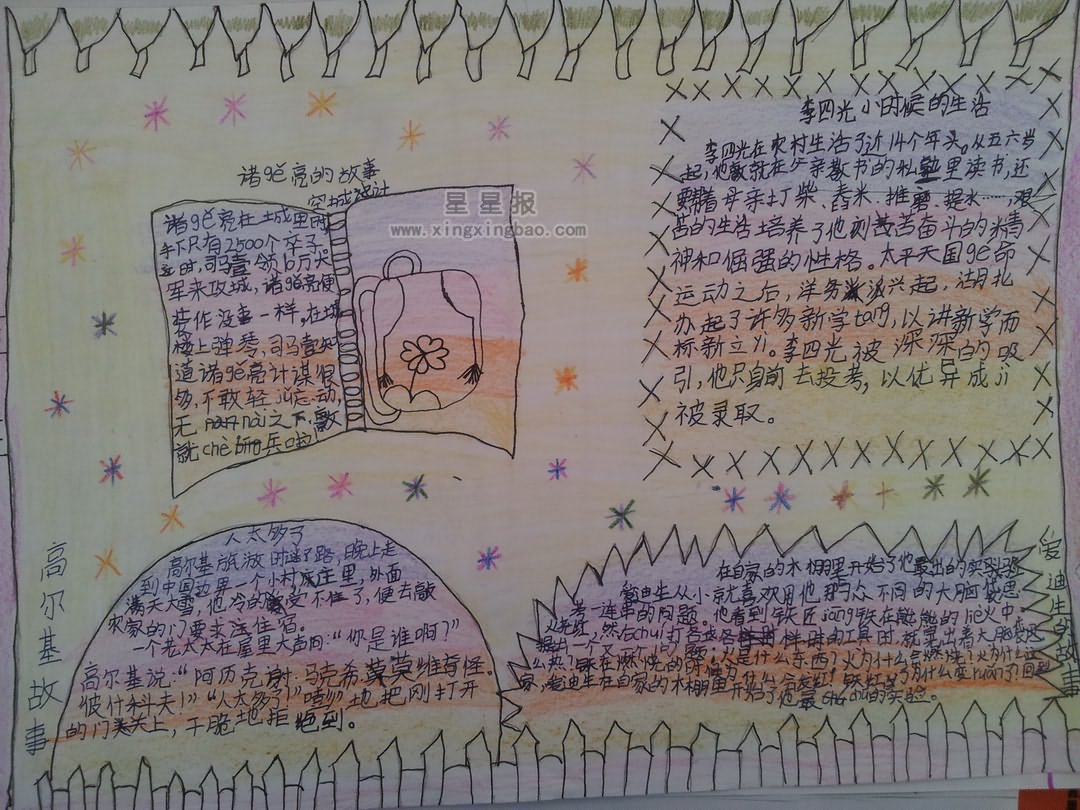 诸gě亮的故事
空城计
星星报
www.xingxingbao.com
诸gě亮在土成里时
手下只有2500个卒子。
时,司马壹领10万大
军来攻城,诸gě亮便
装作没事一样,在城
楼上弹琴,司马壹知
道诸gě亮计谋很
多,不敢轻ju妄动,
无 nài之下,
就chè 兵啦
李四光小时候的生活
李四光在农村生活了近14个年头。从五六岁
起,他就在父亲教书的私塾里读书,还
要帮着母亲打柴、舂米、推磨、提水……,艰
苦的生活培养了他刻苦奋斗的精
神和倔强的性格。太平天国gé命
运动之后,洋务派兴起,湖北
办起了许多新学tang,以讲新学而
标新立yi。李四光被深深的吸
引,他只身前去投考,以优异成ji
被录取。
高尔基故事
人太多了
高尔基旅游时迷了路,晚上走
到中国边界一个小村庄里,外面
满天大雪,他冷的受不住了,便去敲
农家的门要求汢住宿。
一个老太太在屋里大声问:“你是谁啊?”
高尔基说:“阿历克谢·马克希莫维奇怪·
彼什科夫!”“人太多了!”嘭地把刚打开
的门关上,干脆地拒绝到。
爱迪生的故事
在自家的木棚里开始了他最出的实验
爱迪生从小就喜欢用他那与众不同的大脑袋思
考一连串的问题。他看到铁匠jang铁在熊熊的lie火中
火烧红,然后chui打各
家,爱迪生在自家的木棚里开始了他最chu的实验。